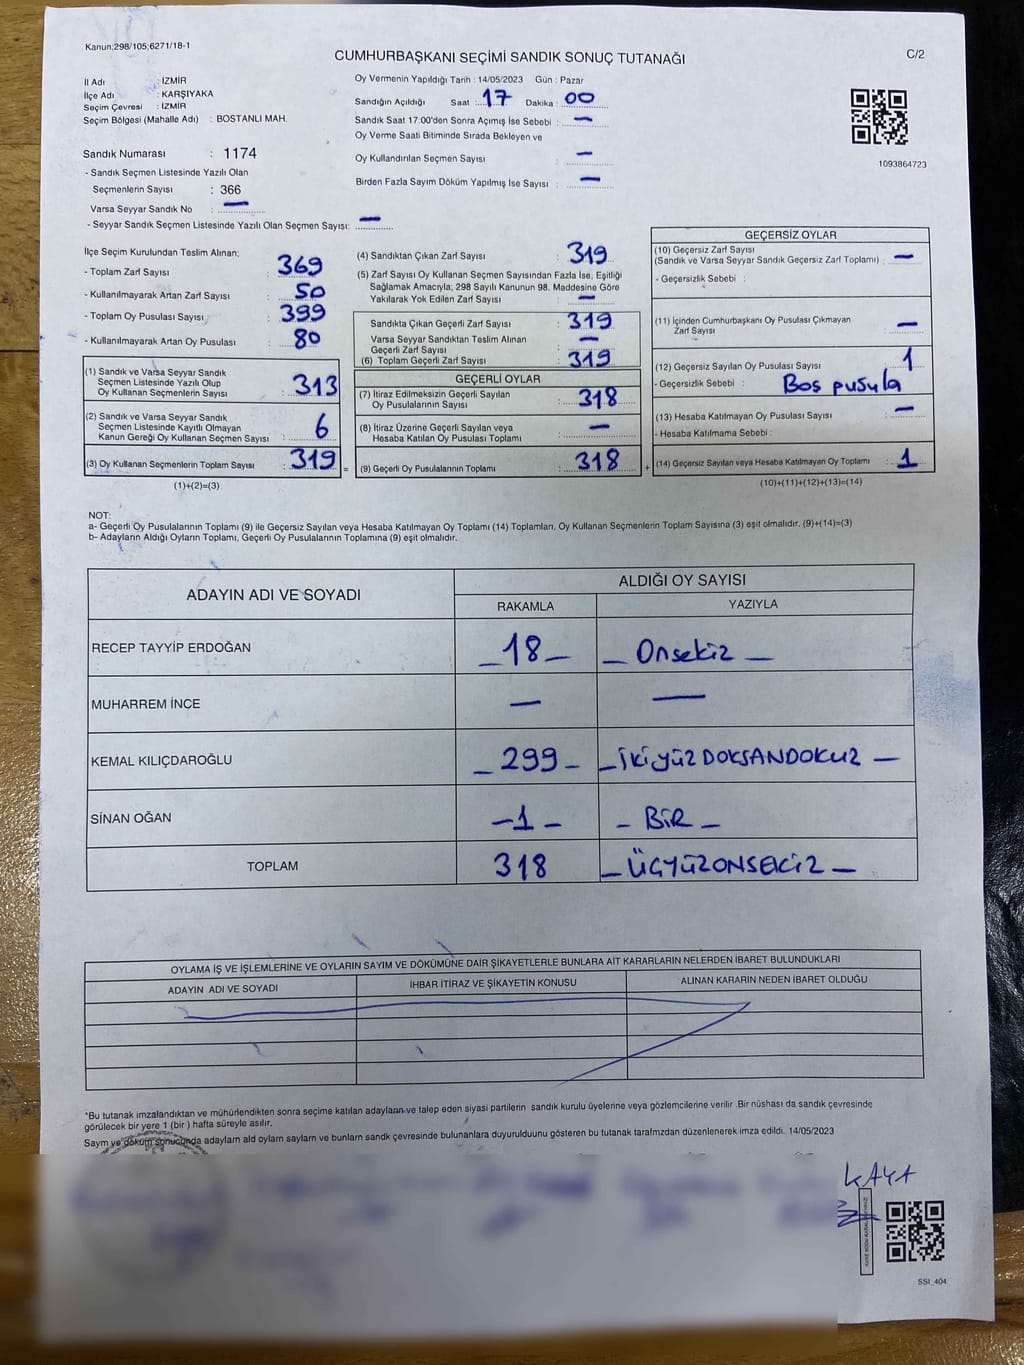 Kanun;298/105;6271/18-1
CUMHURBAŞKANI SEÇİMİ SANDIK SONUÇ TUTANAĞI
C/2
İl Adı : İZMİR
İlçe Adı : KARŞIYAKA
Seçim Çevresi : İZMİR
Seçim Bölgesi (Mahalle Adı) : BOSTANLI MAH.
Oy Vermenin Yapıldığı Tarih : 14/05/2023 Gün : Pazar
Sandığın Açıldığı Saat : 17 Dakika : 00
Sandık Saat 17:00'den Sonra Açımış İse Sebebi : —
Oy Verme Saati Bitiminde Sırada Bekleyen ve
Oy Kullandırılan Seçmen Sayısı : —
Birden Fazla Sayım Döküm Yapılmış İse Sayısı : —
1093864723
Sandık Numarası : 1174
- Sandık Seçmen Listesinde Yazılı Olan
Seçmenlerin Sayısı : 366
Varsa Seyyar Sandık No : —
- Seyyar Sandık Seçmen Listesinde Yazılı Olan Seçmen Sayısı: —
İlçe Seçim Kurulundan Teslim Alınan;
- Toplam Zarf Sayısı : 369
- Kullanılmayarak Artan Zarf Sayısı : 50
- Toplam Oy Pusulası Sayısı : 399
- Kullanılmayarak Artan Oy Pusulası : 80
(1) Sandık ve Varsa Seyyar Sandık
Seçmen Listesinde Yazılı Olup
Oy Kullanan Seçmenlerin Sayısı : 313
(2) Sandık ve Varsa Seyyar Sandık
Seçmen Listesinde Kayıtlı Olmayan
Kanun Gereği Oy Kullanan Seçmen Sayısı : 6
(3) Oy Kullanan Seçmenlerin Toplam Sayısı : 319 =
(1)+(2)=(3)
(4) Sandıktan Çıkan Zarf Sayısı : 319
(5) Zarf Sayısı Oy Kullanan Seçmen Sayısından Fazla İse, Eşitliği
Sağlamak Amacıyla; 298 Sayılı Kanunun 98. Maddesine Göre
Yakılarak Yok Edilen Zarf Sayısı : —
Sandıkta Çıkan Geçerli Zarf Sayısı : 319
Varsa Seyyar Sandıktan Teslim Alınan
Geçerli Zarf Sayısı : —
(6) Toplam Geçerli Zarf Sayısı : 319
GEÇERLİ OYLAR
(7) İtiraz Edilmeksizin Geçerli Sayılan
Oy Pusulalarının Sayısı : 318
(8) İtiraz Üzerine Geçerli Sayılan veya
Hesaba Katılan Oy Pusulası Toplamı : —
(9) Geçerli Oy Pusulalarının Toplamı : 318 +
GEÇERSİZ OYLAR
(10) Geçersiz Zarf Sayısı
(Sandık ve Varsa Seyyar Sandık Geçersiz Zarf Toplamı) : —
- Geçersizlik Sebebi :
(11) İçinden Cumhurbaşkanı Oy Pusulası Çıkmayan
Zarf Sayısı : —
(12) Geçersiz Sayılan Oy Pusulası Sayısı : 1
- Geçersizlik Sebebi : Boş pusula
(13) Hesaba Katılmayan Oy Pusulası Sayısı : —
- Hesaba Katılmama Sebebi :
(14) Geçersiz Sayılan veya Hesaba Katılmayan Oy Toplamı : 1
(10)+(11)+(12)+(13)=(14)
NOT:
a- Geçerli Oy Pusulalarının Toplamı (9) ile Geçersiz Sayılan veya Hesaba Katılmayan Oy Toplamı (14) Toplamları, Oy Kullanan Seçmenlerin Toplam Sayısına (3) eşit olmalıdır. (9)+(14)=(3)
b- Adayların Aldığı Oyların Toplamı, Geçerli Oy Pusulalarının Toplamına (9) eşit olmalıdır.
ADAYIN ADI VE SOYADI
ALDIĞI OY SAYISI
RAKAMLA YAZIYLA
RECEP TAYYİP ERDOĞAN — 18 — — Onsekiz —
MUHARREM İNCE — —
KEMAL KILIÇDAROĞLU — 299 — — İKİYÜZDOKSANDOKUZ —
SİNAN OĞAN — 1 — — BİR —
TOPLAM 318 — ÜÇYÜZONSEKİZ —
OYLAMA İŞ VE İŞLEMLERİNE VE OYLARIN SAYIM VE DÖKÜMÜNE DAİR ŞİKAYETLERLE BUNLARA AİT KARARLARIN NELERDEN İBARET BULUNDUKLARI
ADAYIN ADI VE SOYADI
İHBAR İTİRAZ VE ŞİKAYETİN KONUSU
ALINAN KARARIN NEDEN İBARET OLDUĞU
*Bu tutanak imzalandıktan ve mühürlendikten sonra seçime katılan adayların ve talep eden siyasi partilerin sandık kurulu üyelerine veya gözlemcilerine verilir .Bir nüshası da sandık çevresinde
görülecek bir yere 1 (bir ) hafta süreyle asılır.
Saym ve döküm sonucunda adaylarn ald oylarn saylarn ve bunlarn sandk çevresinde bulunanlara duyurulduunu gösteren bu tutanak tarafmzdan düzenlenerek imza edildi. 14/05/2023
KAYA
SSI_404